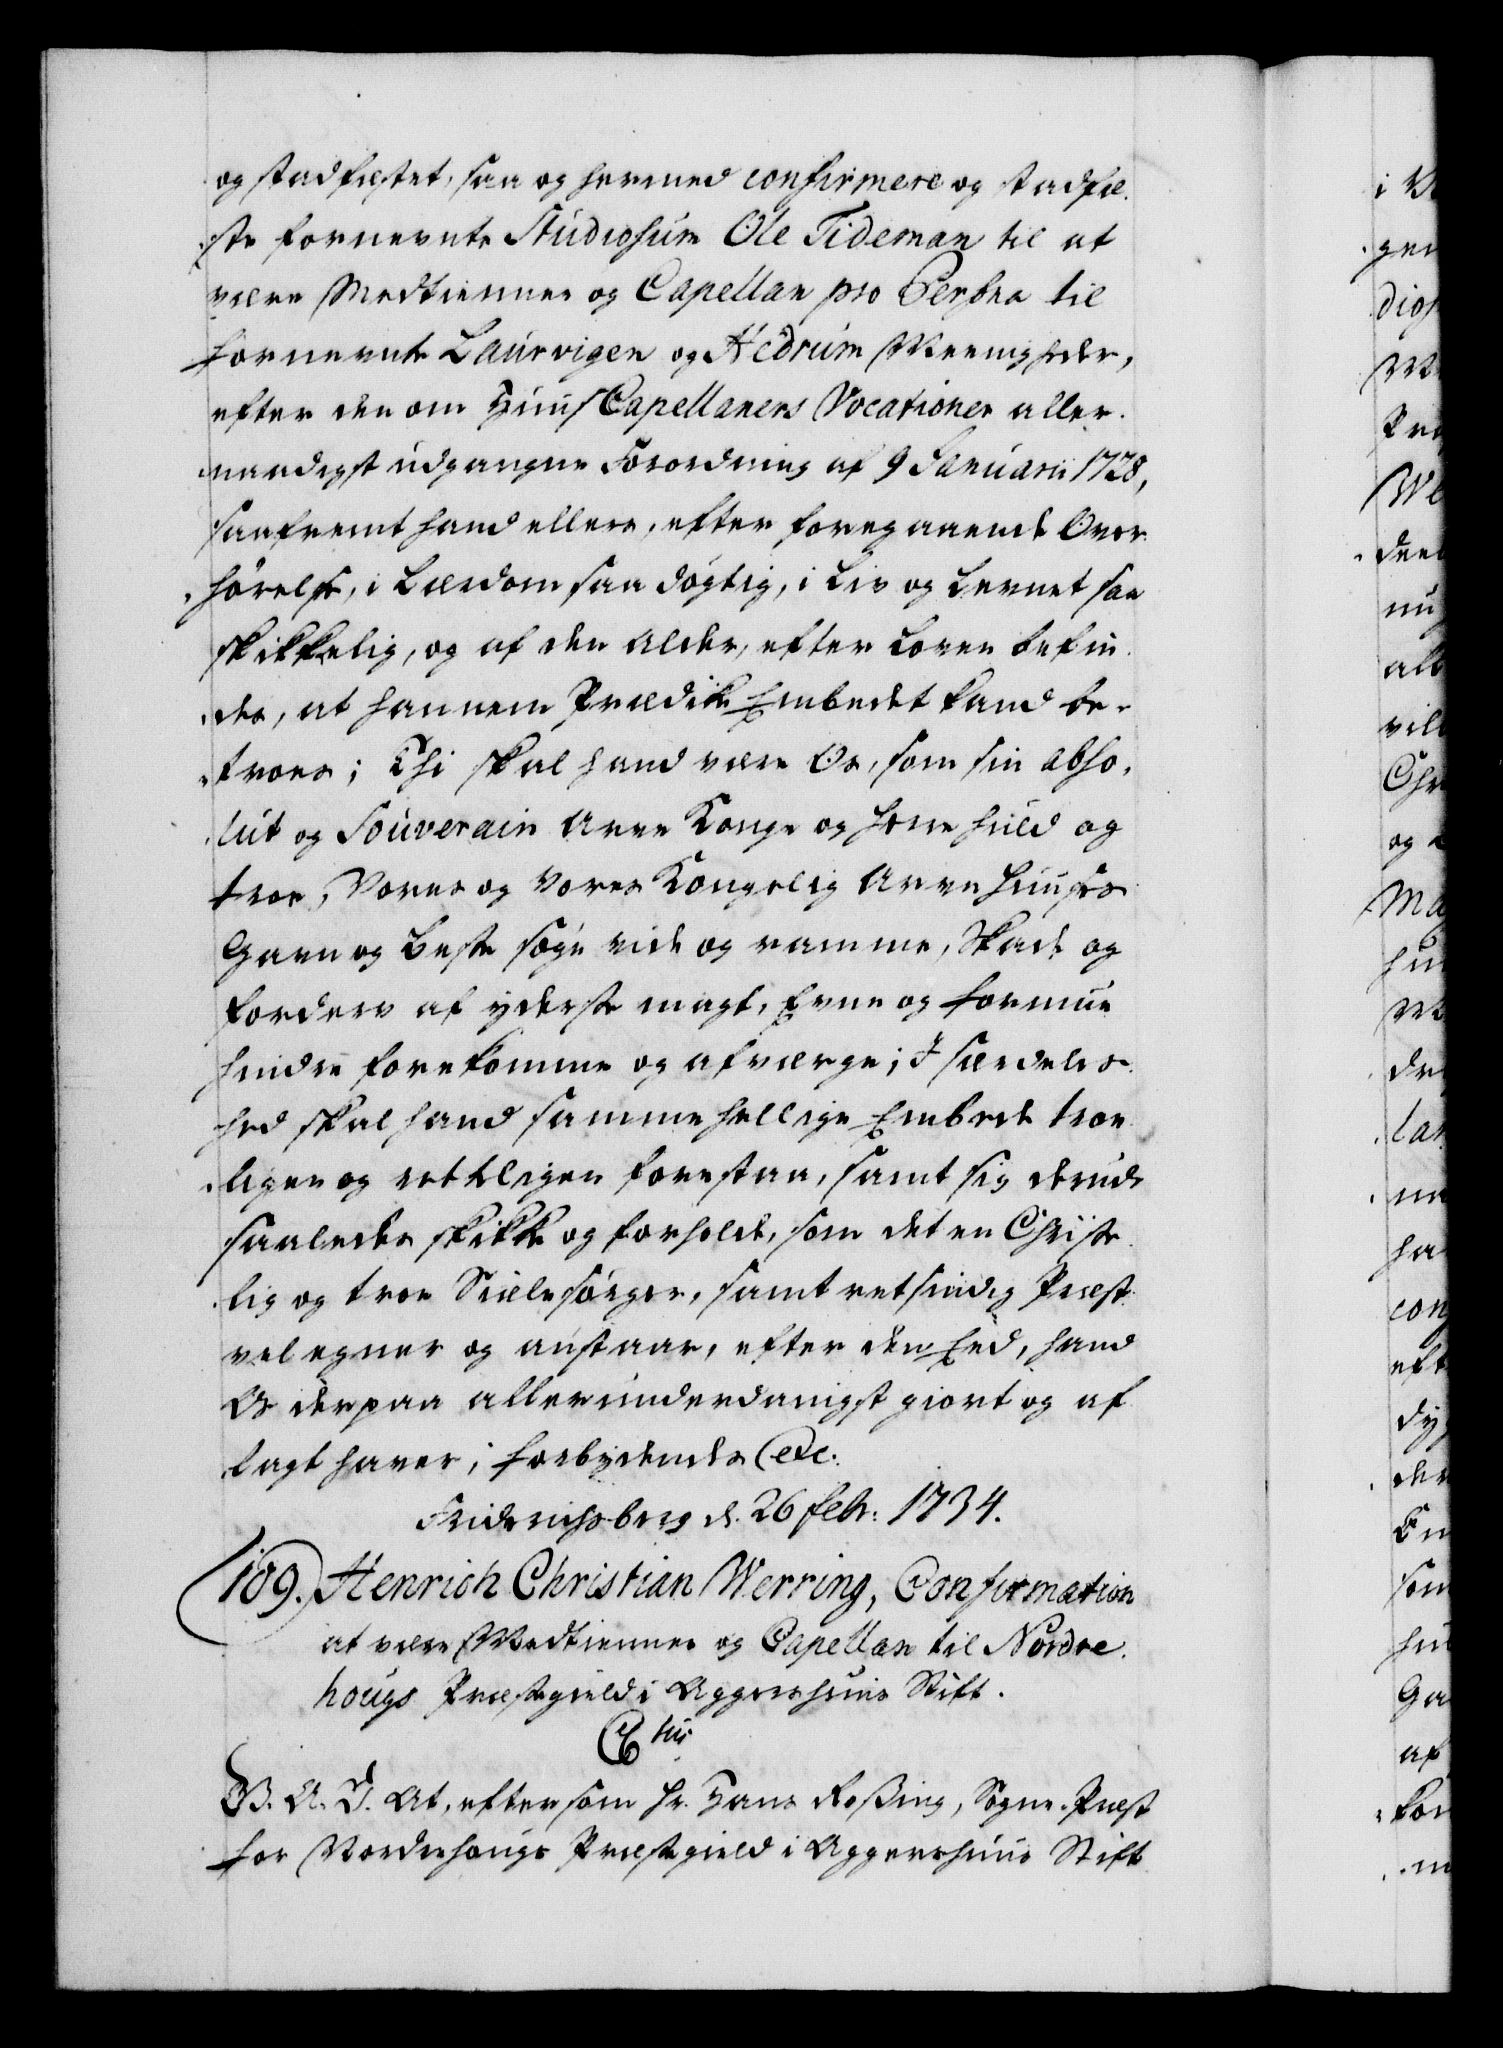 og stadfæstet, saa og hermed confirmere og stadfæ-
ste fornevnte Studiosum Ole Tideman til at
være Medtienner og Capellan pro Persona til
fornevnte Laurvigen og Hedrum Meenigheder,
efter den om Huus Capellaners Vocationer aller-
naadigst udgangne Forordning af 9 Januarii 1728,
saafremt hand ellers, efter foregaaende Over-
hørelse, i Lærdom saa dygtig, i Liv og Levnet saa
skikkelig, og af den Alder, efter Loven befin-
des, at hannem Prædike Embedet kand be-
troes; Thi skal hand være Os, som sin abso-
lut og Souverain Arve Konge og Herre huld og
troe, Vores og Vores Kongelig Arve Huuses
Gavn og Beste søge vide og ramme, Skade og
forderv af yderste magt, Evne og formue
hindre forekomme og afverge; I særdeles-
hed skal hand samme hellige Embede troe-
ligen og retteligen forestaa, samt sig derudi
saaledes skikke og forholde, som det en Christe-
lig og troe Siælesørger, samt retsindig Præst
vel egner og anstaar, efter den Eed, hand
Os derpaa allerunderdanigst giort og af-
lagt haver; forbydendes etc:
Friderichsberg d. 26 febr: 1734.
109. Henrich Christian Werring, Confirmation
at være Medtienner og Capellan til Nordre-
hougs Præstegield i Aggershuus Stift.
C 6tus
G. A. V. At, eftersom Hr. Hans Rossing, Sogne-Præst
for Nordrehougs Præstegield i Aggershuus Stift